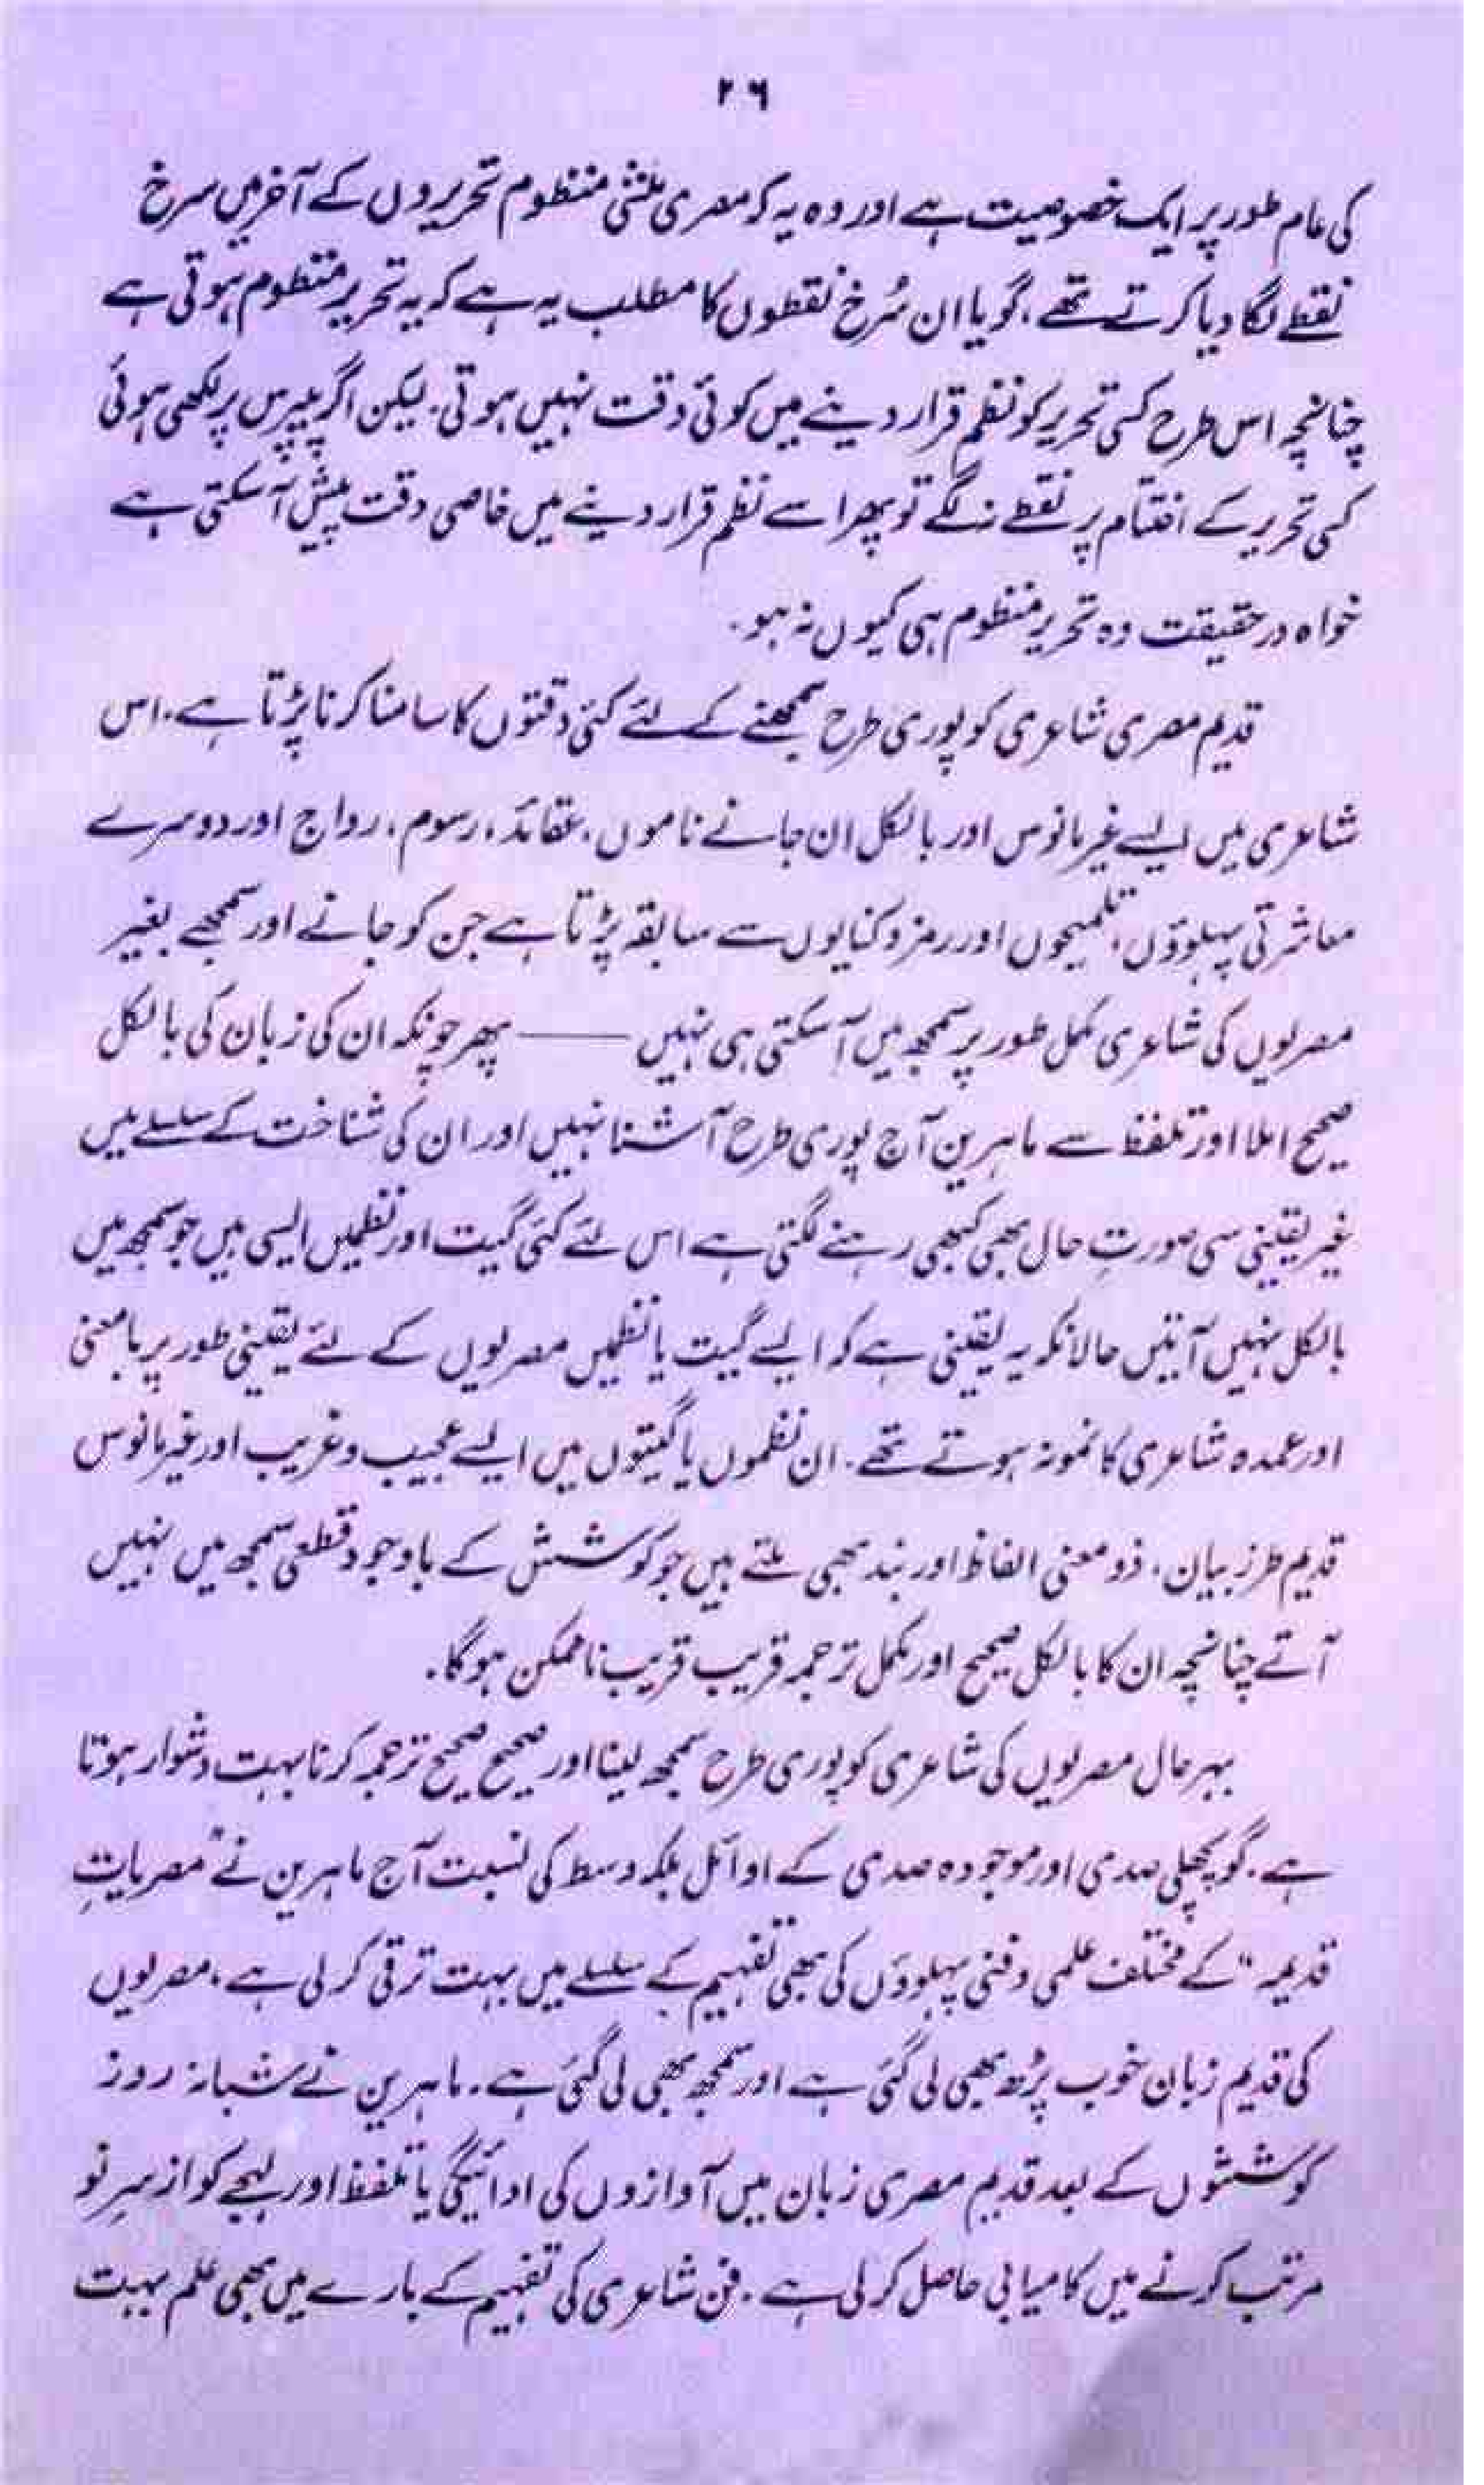 ۲۶
کی عام طور پر ایک خصوصیت ہے اور وہ یہ کہ مصری منشی منظوم تحریروں کے آخر میں سرخ
نقطے لگا دیا کرتے تھے، گویا ان سُرخ نقطوں کا مطلب یہ ہے کہ یہ تحریر منظوم ہوتی ہے
چنانچہ اس طرح کسی تحریر کو نظم قرار دینے میں کوئی دقت نہیں ہوتی۔ لیکن اگر پیپرس پر لکھی ہوئی
کسی تحریر کے اختتام پر نقطے نہ لگے تو پھر اسے نظم قرار دینے میں خاصی دقت پیش آ سکتی ہے
خواہ درحقیقت وہ تحریر منظوم ہی کیوں نہ ہو۔
قدیم مصری شاعری کو پوری طرح سمجھنے کے لئے کئی دقتوں کا سامنا کرنا پڑتا ہے۔ اس
شاعری میں ایسے غیر مانوس اور بالکل ان جانے ناموں، عقائد، رسوم، رواج اور دوسرے
معاشرتی پہلوؤں، تلمیحوں اور رمز و کنایوں سے سابقہ پڑتا ہے جن کو جانے اور سمجھے بغیر
مصریوں کی شاعری مکمل طور پر سمجھ میں آ سکتی ہی نہیں —— پھر چونکہ ان کی زبان کی بالکل
صحیح املا اور تلفظ سے ماہرین آج پوری طرح آشنا نہیں اور ان کی شناخت کے سلسلے میں
غیر یقینی سی صورتِ حال بھی کبھی رہنے لگتی ہے اس لئے کئی گیت اور نظمیں ایسی ہیں جو سمجھ میں
بالکل نہیں آتیں حالانکہ یہ یقینی ہے کہ ایسے گیت یا نظمیں مصریوں کے لئے یقینی طور پر بامعنی
اور عمدہ شاعری کا نمونہ ہوتے تھے۔ ان نظموں یا گیتوں میں ایسے عجیب و غریب اور غیر مانوس
قدیم طرز بیان، ذو معنی الفاظ اور بند بھی ملتے ہیں جو کوشش کے باوجود قطعی سمجھ میں نہیں
آتے چنانچہ ان کا بالکل صحیح اور مکمل ترجمہ قریب قریب ناممکن ہوگا۔
بہرحال مصریوں کی شاعری کو پوری طرح سمجھ لینا اور صحیح صحیح ترجمہ کرنا بہت دشوار ہوتا
ہے۔ گو پچھلی صدی اور موجودہ صدی کے اوائل بلکہ وسط کی نسبت آج ماہرین نے "مصریاتِ
قدیمہ" کے مختلف علمی و فنی پہلوؤں کی بھی تفہیم کے سلسلے میں بہت ترقی کر لی ہے، مصریوں
کی قدیم زبان خوب پڑھ بھی لی گئی ہے اور سمجھ بھی لی گئی ہے۔ ماہرین نے شبانہ روز
کوششوں کے بعد قدیم مصری زبان میں آوازوں کی ادائیگی یا تلفظ اور لہجے کو از سرِ نو
مرتب کرنے میں کامیابی حاصل کر لی ہے۔ فن شاعری کی تفہیم کے بارے میں بھی علم بہت